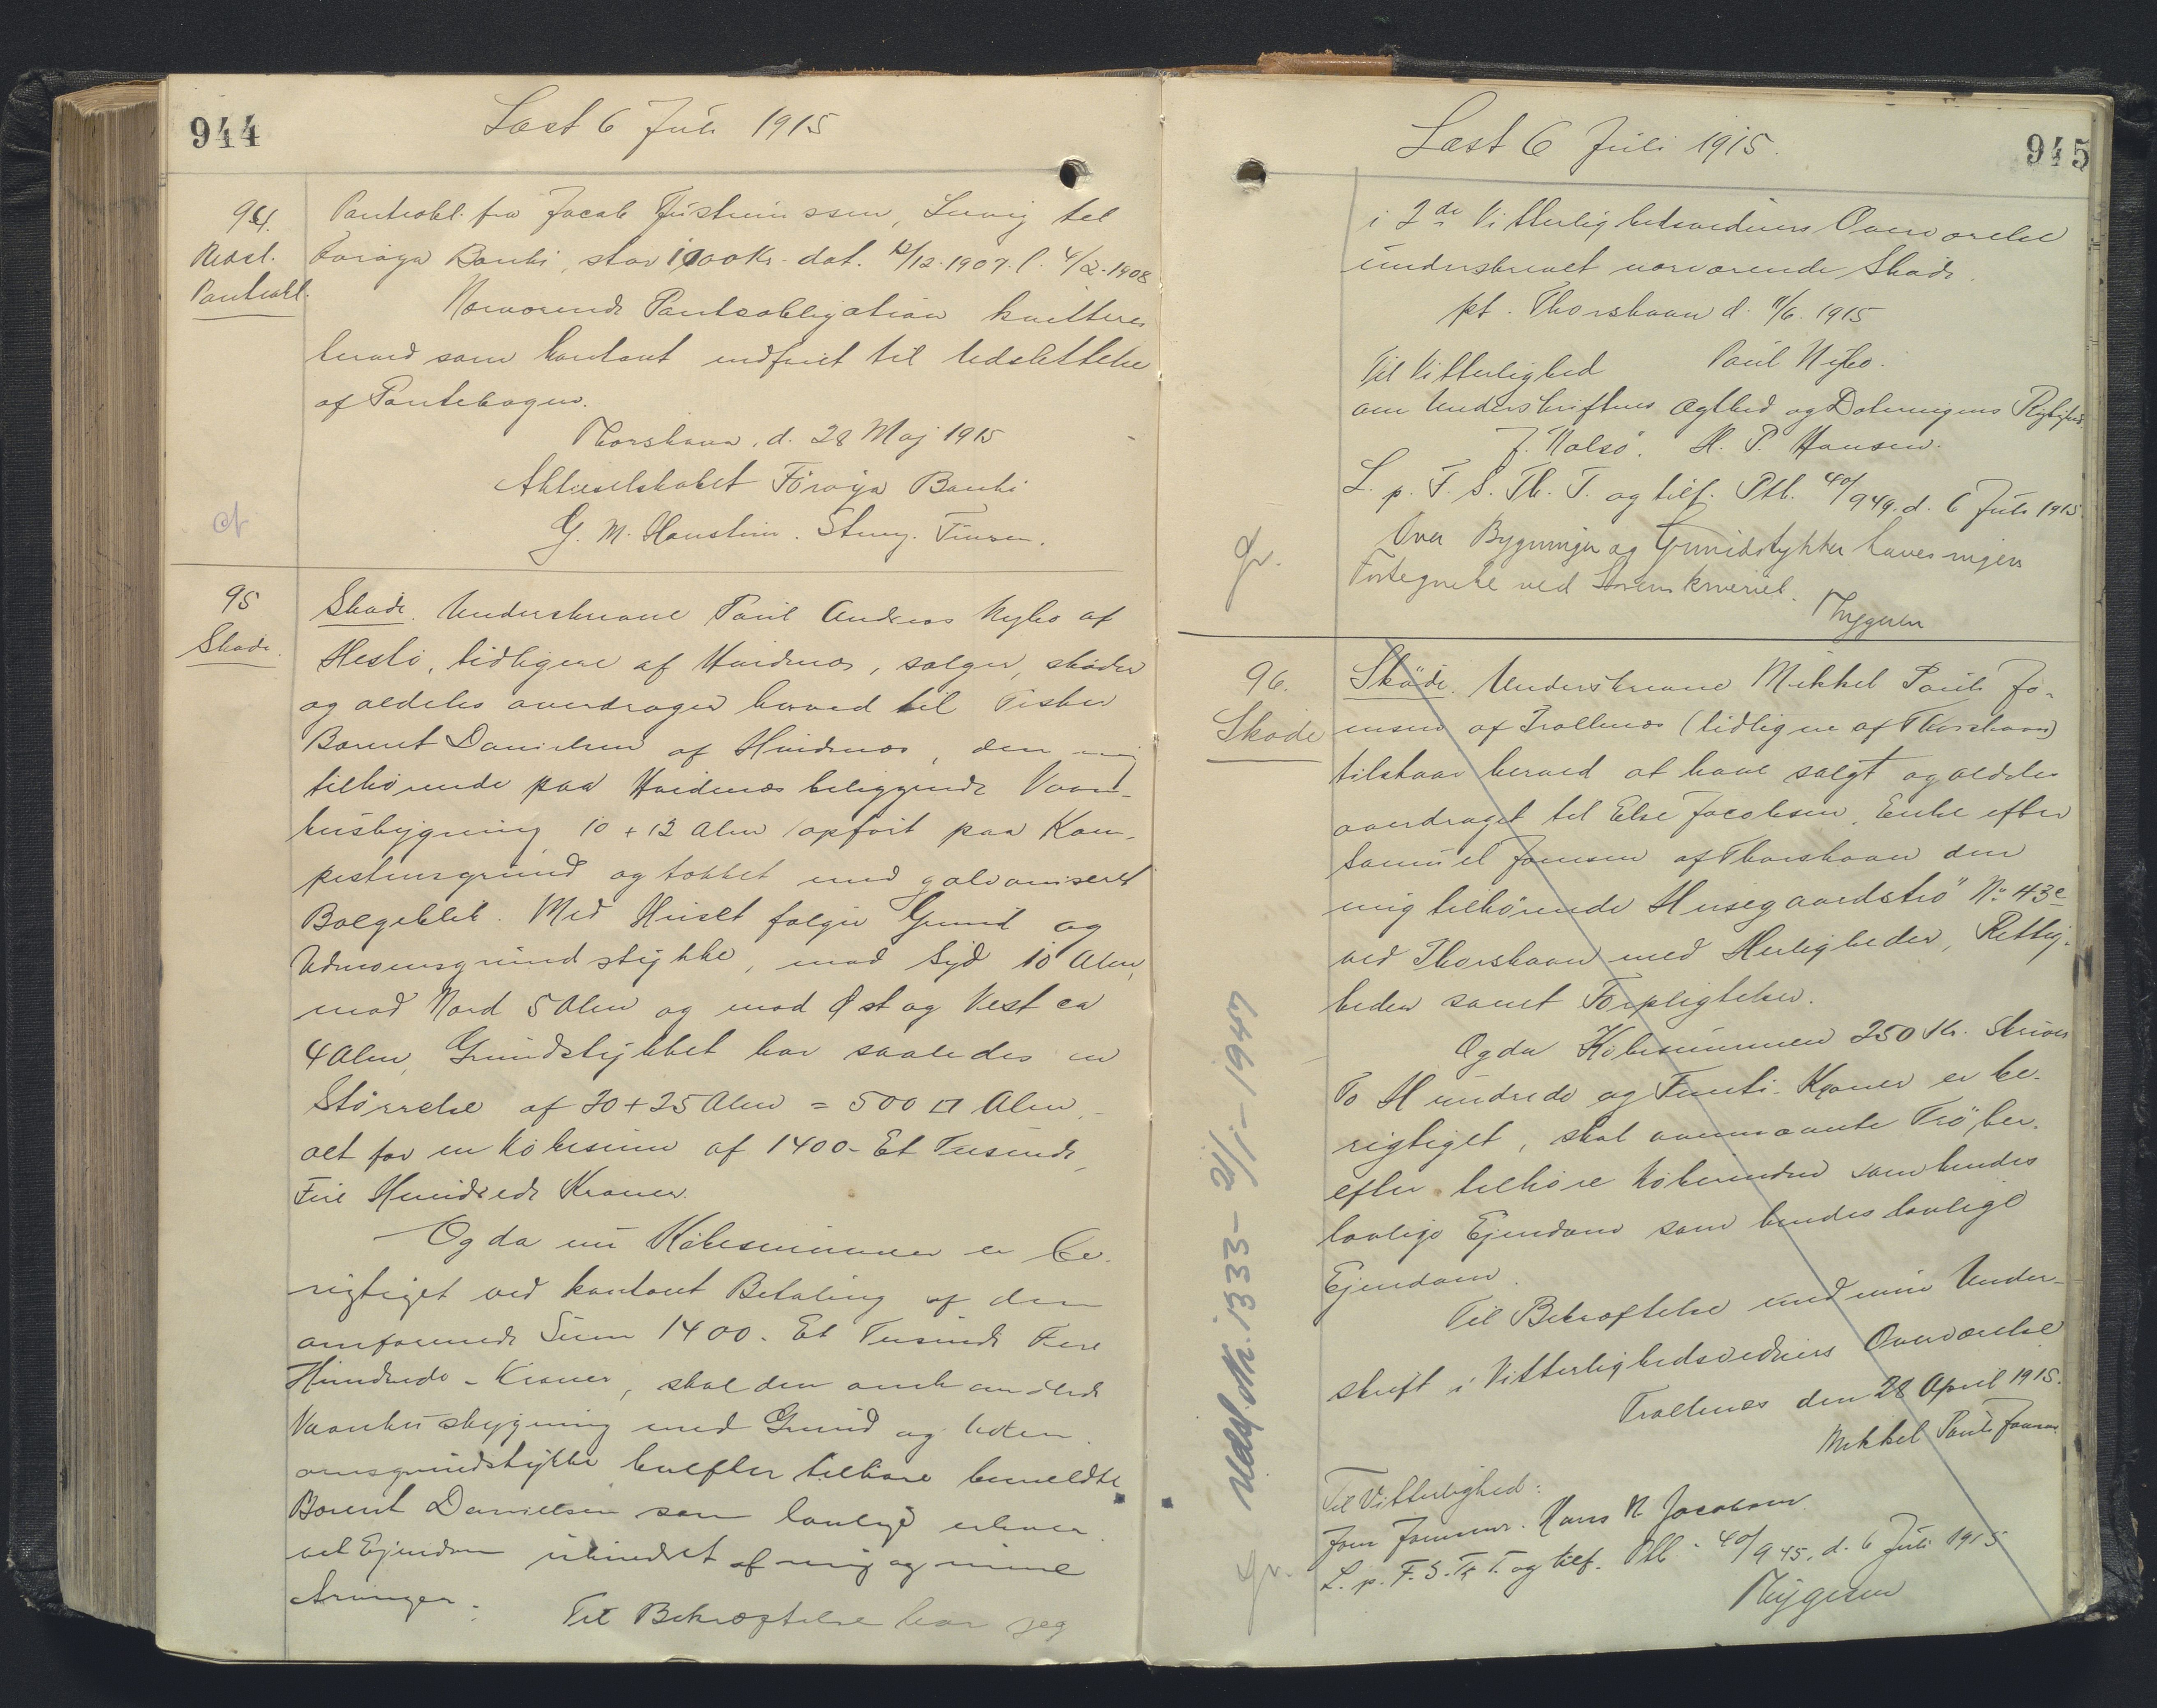 944
Læst 6 Juli 1915
94.
Udsl.
Pantobl.
Pantobl. fra Jacob Justinussen, Lervig til
Føroya Banki, stor 1000 Kr. dat. 12/12. 1907. l. 4/2. 1908
Nærværende Pantobligation kvitteres
herved som kontant indfriet til Udslettelse
af Pantebogen.
Thorshavn, d. 28 Maj 1915
Aktieselskabet Föroya Banki
G. M. Hanstein.
95
Skøde.
Skøde. Underskrevne Poul Andreas Nybo af
Hestö, tidligere af Hvidenæs, sælger, skøder
og aldeles overdrager herved til Fisker
Barent Danielsen af Hvidenæs, den mig
tilhørende paa Hvidenæs beliggende Vaan-
husbygning 10 + 12 Alen opført paa Kam-
pestensgrund og tækket med galvaniseret
Bølgeblik. Med Huset følger Grund og
Udenomsgrundstykke, mod Syd 10 Alen,
mod Nord 5 Alen og mod Øst og Vest ca
4 Alen, Grundstykket har saaledes en
Størrelse af 20 + 25 Alen = 500 □ Alen,
alt for en Købesum af 1400 - Et Tusinde,
Fire Hundrede Kroner.
Og da nu Købesummen er be-
rigtiget ved kontant Betaling af den
omformede Sum 1400. Et Tusinde Fire
Hundrede - Kroner, skal den omhandlede
Vaanhusbygning med Grund og Uden-
omsgrundstykke herefter tilhøre bemeldte
Barent Danielsen som lovlig erhver-
vet Ejendom uhindret af mig og mine
Arvinger.
Til Bekræftelse har jeg
Læst 6 Juli 1915.
945
i 2de Vitterlighedsvidners Overværelse
underskrevet nærværende Skøde.
pt. Thorshavn d. 11/6. 1915
Poul Nybo.
Til Vitterlighed
om Underskriftens Ægthed og Dateringens Rigtighed
J. Nolsö. H. P. Hansen.
L. p. F. S. Th. T. og tilf. Ptb. 40/944. d. 6 Juli 1915
Over Bygninger og Grundstykker haves ingen
Fortegnelse ved Sorenskriveriet.
Thygesen
gr.
96.
Skøde
Skøde. Underskrevne Mikkel Pauli Jo-
ensen af Trollenæs (tidligere af Thorshavn)
tilstaar herved at have solgt og aldeles
overdraget til Else Jacobsen, Enke efter
Samuel Joensen af Thorshavn den
mig tilhørende Husegaardströ No 43e
ved Thorshavn med Herligheder, Rettig-
heder samt Forpligtelser.
Og da Købesummen 250 Kr. skriver
To Hundrede og Femti - Kroner er be-
rigtiget, skal ovennævnte Trö her-
efter tilhøre Købersken som hendes
lovlige Ejendom som hendes lovlige
Ejendom.
Til Bekræftelse med min Under-
skrift i Vitterlighedsvidners Overværelse
Trollenæs den 28 April 1915.
Mikkel Pauli Joensen
Til Vitterlighed:
Joen Joensen. Hans N. Jacobsen.
L. p. F. S. Th. T. og tilf. Ptb. 40/945, d. 6 Juli 1915
Thygesen
gr.
Udsl. Nr. 1333 - 21/1 - 1947